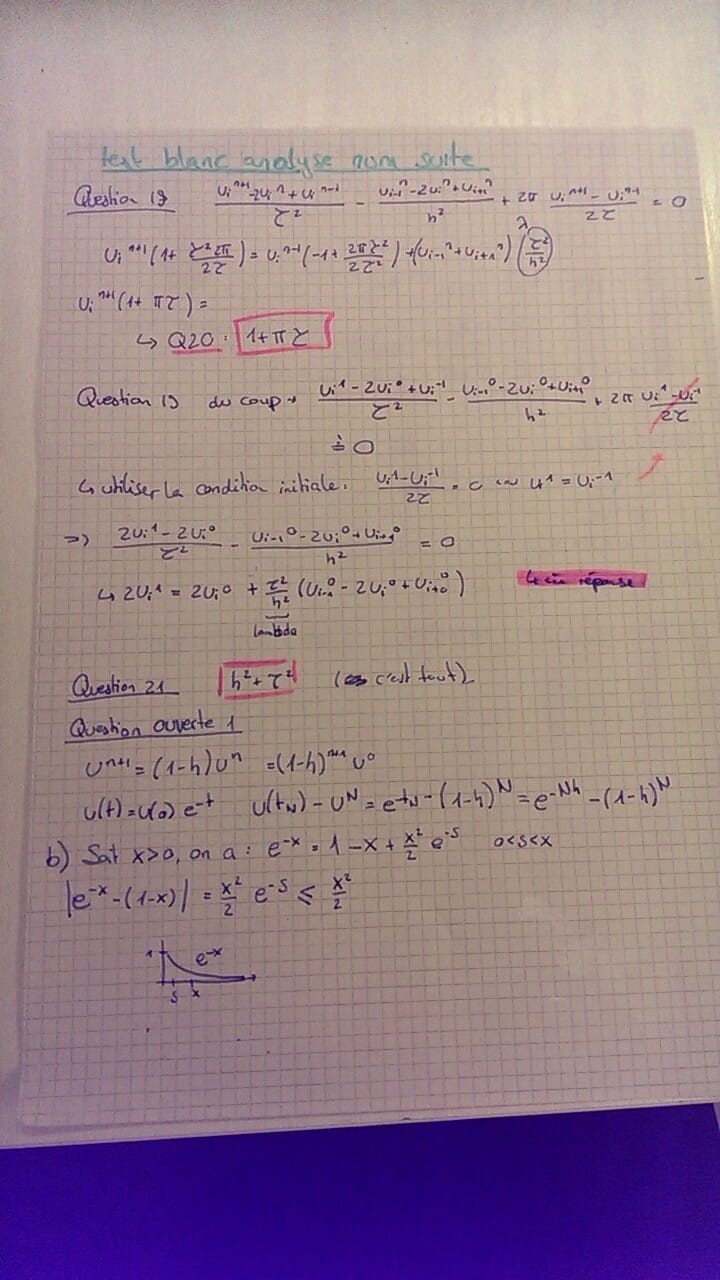 test blanc analyse num suite
Question 19 (uᵢⁿ⁺¹-2uᵢⁿ+uᵢⁿ⁻¹)/τ² - (uᵢ₋₁ⁿ-2uᵢⁿ+uᵢ₊₁ⁿ)/h² + 2π (uᵢⁿ⁺¹-uᵢⁿ⁻¹)/2τ = 0
uᵢⁿ⁺¹(1+ τ²2π/2τ) = uᵢⁿ⁻¹(-1+ 2πτ²/2τ²) + (uᵢ₋₁ⁿ+uᵢ₊₁ⁿ)(τ²/h²) λ
uᵢⁿ⁺¹(1+ πτ) =
↳ Q20 : 1+πτ
Question 19 du coup → (uᵢ¹-2uᵢ⁰+uᵢ⁻¹)/τ² - (uᵢ₋₁⁰-2uᵢ⁰+uᵢ₊₁⁰)/h² + 2π (uᵢ¹-uᵢ⁻¹)/2τ
= 0
↳ utiliser la condition initiale : (uᵢ¹-uᵢ⁻¹)/2τ = 0 ~~ u¹ = uᵢ⁻¹
⇒ (2uᵢ¹-2uᵢ⁰)/τ² - (uᵢ₋₁⁰-2uᵢ⁰+uᵢ₊₁⁰)/h² = 0
↳ 2uᵢ¹ = 2uᵢ⁰ + τ²/h² (uᵢ₋₁⁰-2uᵢ⁰+uᵢ₊₁⁰) réponse
lambda
Question 21 h²+τ² (c'est tout)
Question ouverte 1
uⁿ⁺¹ = (1-h)uⁿ = (1-h)ⁿ⁺¹ u⁰
u(t) = u(0) e⁻ᵗ u(t_N) - u^N = e^(-t_N) - (1-h)^N = e^(-Nh) - (1-h)^N
b) Soit x>0, on a : e⁻ˣ = 1 - x + x²/2 e^(-s) 0<s<x
|e⁻ˣ - (1-x)| = x²/2 e^(-s) ≤ x²/2
1 e⁻ˣ
s x